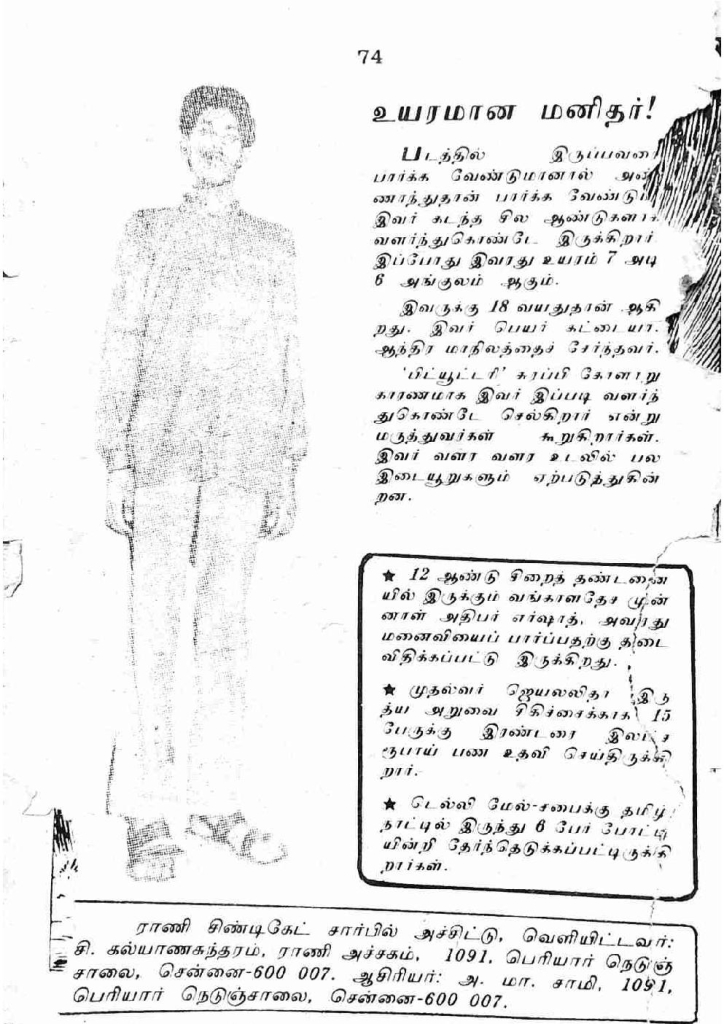 74
உயரமான மனிதர்!
படத்தில் இருப்பவரை
பார்க்க வேண்டுமானால் அண்
ணாந்துதான் பார்க்க வேண்டும்.
இவர் கடந்த சில ஆண்டுகளாக
வளர்ந்துகொண்டே இருக்கிறார்.
இப்போது இவரது உயரம் 7 அடி
6 அங்குலம் ஆகும்.
இவருக்கு 18 வயதுதான் ஆகி
றது. இவர் பெயர் கட்டையா.
ஆந்திர மாநிலத்தைச் சேர்ந்தவர்.
'பிட்யூட்டரி' சுரப்பி கோளாறு
காரணமாக இவர் இப்படி வளர்ந்
துகொண்டே செல்கிறார் என்று
மருத்துவர்கள் கூறுகிறார்கள்.
இவர் வளர வளர உடலில் பல
இடையூறுகளும் ஏற்படுத்துகின்
றன.
★ 12 ஆண்டு சிறைத் தண்டனை
யில் இருக்கும் வங்காளதேச முன்
னாள் அதிபர் எர்ஷாத், அவரது
மனைவியைப் பார்ப்பதற்கு தடை
விதிக்கப்பட்டு இருக்கிறது.
★ முதல்வர் ஜெயலலிதா இரு
த்ய அறுவை சிகிச்சைக்காக 15
பேருக்கு இரண்டரை இலட்ச
ரூபாய் பண உதவி செய்திருக்கி
றார்.
★ டெல்லி மேல்-சபைக்கு தமிழ்
நாட்டில் இருந்து 6 பேர் போட்டி
யின்றி தேர்ந்தெடுக்கப்பட்டிருக்கி
றார்கள்.
ராணி சிண்டிகேட் சார்பில் அச்சிட்டு, வெளியிட்டவர்:
சி. கல்யாணசுந்தரம், ராணி அச்சகம், 1091, பெரியார் நெடுஞ்
சாலை, சென்னை-600 007. ஆசிரியர்: அ. மா. சாமி, 1091,
பெரியார் நெடுஞ்சாலை, சென்னை-600 007.